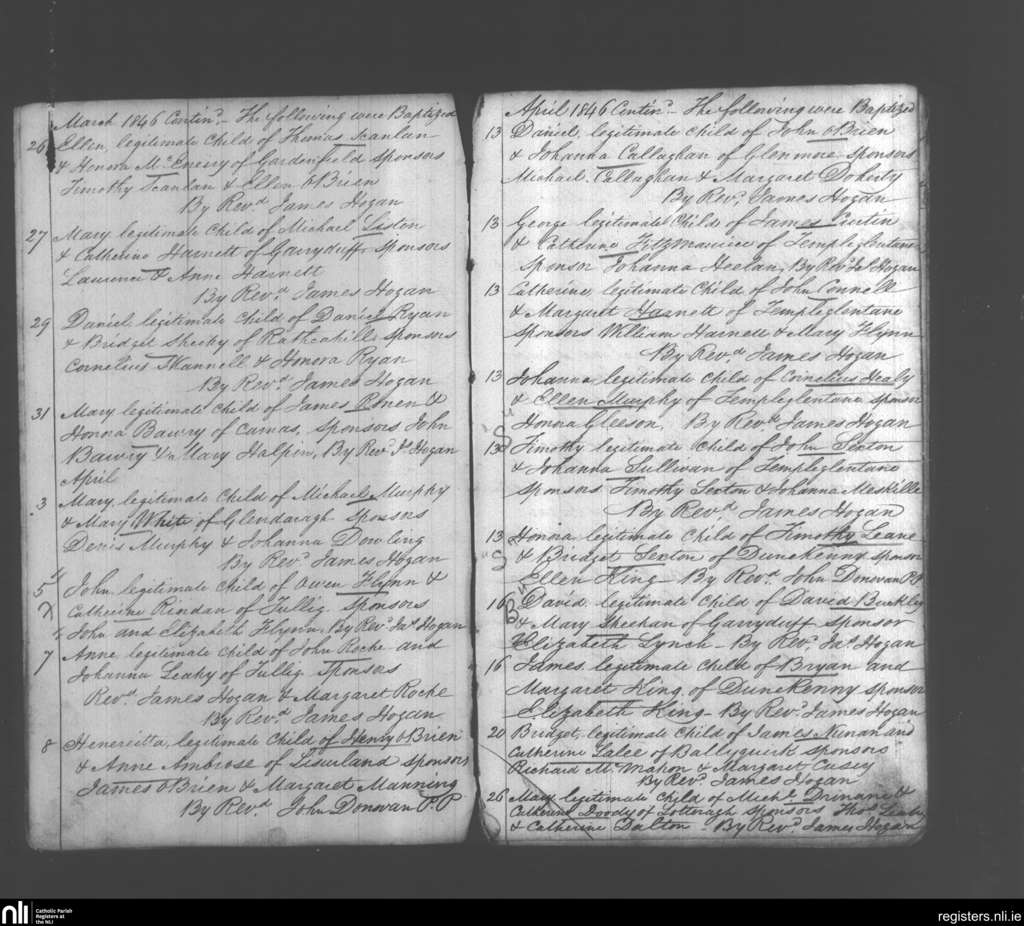 March 1846 Contind. - The following were Baptized
26 Ellen, legitimate Child of Thomas Scanlan
& Honora Mc.Eneiry of Gardenfield Sponsors
Timothy Scanlan & Ellen OBrien
By Revd. James Hogan
27 Mary legitimate Child of Michael Liston
& Catherine Harnett of Garryduff Sponsors
Laurence & Anne Harnett
By Revd. James Hogan
29 Daniel legitimate Child of Daniel Ryan
& Bridget Sheehy of Rathcahill Sponsors
Cornelius & Honora Ryan
By Revd. James Hogan
31 Mary legitimate Child of James &
Honora Bawry of Camas, Sponsors John
Bawry & Mary Halpin, By Revd. Js. Hogan
April
3 Mary legitimate Child of Michael Murphy
& Mary White of Glendaragh Sponsors
Denis Murphy & Johanna Dowling
By Revd. James Hogan
5 John, legitimate Child of Owen Flynn &
Catherine Riordan of Tullig Sponsors
John and Elizabeth Flynn, By Revd. Jas. Hogan
7 Anne legitimate Child of John Roche and
Johanna Leahy of Tullig Sponsors
Revd. James Hogan & Margaret Roche
By Revd. James Hogan
8 Henerietta, legitimate Child of Henry OBrien
& Anne Ambrose of Liskilland Sponsors
James OBrien & Margaret Manning
By Revd. John Donovan P.P
April 1846 Contind. - The following were Baptized
13 Daniel, legitimate Child of John OBrien
& Johanna Callaghan of Glenmore Sponsors
Michael Callaghan & Margaret Doherty
By Revd. James Hogan
13 George legitimate Child of James Curtin
& Catherine Fitzmaurice of Templeglentane
Sponsor Johanna Heelan, By Revd. Jas. Hogan
13 Catherine legitimate Child of John Connell
& Margaret Harnett of Templeglentane
Sponsors William Harnett & Mary Flynn
By Revd. James Hogan
13 Johanna legitimate Child of Cornelius Healy
& Ellen Murphy of Templeglentane Sponsor
Honora Gleeson, By Revd. James Hogan
13 Timothy legitimate Child of John Sexton
& Johanna Sullivan of Templeglentane
Sponsors Timothy Sexton & Johanna Meskille
By Revd. James Hogan
13 Honora legitimate Child of Timothy Leane
& Bridget Sexton of Dunekenny Sponsor
Ellen King - By Revd. John Donovan P.P.
16 David legitimate Child of David Buckley
& Mary Sheehan of Garryduff Sponsor
Elizabeth Lynch - By Revd. Jas. Hogan
16 James legitimate Child of Bryan and
Margaret King of Dunekenny Sponsor
Elizabeth King - By Revd. James Hogan
20 Bridget legitimate Child of James Nunan and
Catherine Lalee of Ballyguirk Sponsors
Richard Mc.Mahon & Margaret Casey
By Revd. James Hogan
26 Mary legitimate Child of Michl. Drinane &
Catherine Doody of Sponsors Thos. Leahy
& Catherine Dalton - By Revd. James Hogan
nli
Catholic Parish
Registers at
the NLI
registers.nli.ie